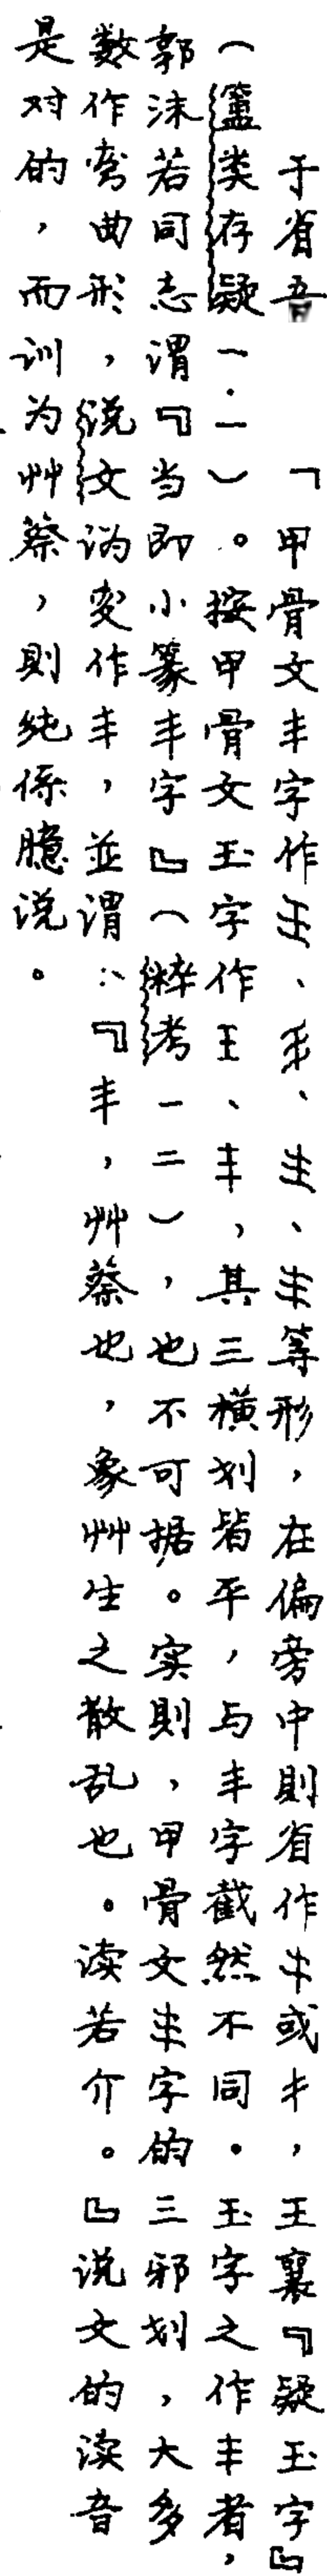 于省吾　「甲骨文丰字作、、、等形，在偏旁中則省作或，王襄『疑玉字』
（簠类存疑一·一）。按甲骨文玉字作王、丰，其三橫划皆平，与丰字截然不同。玉字之作丰者，
郭沫若同志谓『当即小篆丰字』（粹考一二），也不可据。实則，甲骨文字的三邪划，大多
数作弯曲形，说文讹变作丰，並谓：『丰，艸蔡也，象艸生之散乱也。读若介。』说文的读音
是对的，而训为艸蔡，則纯係臆说。